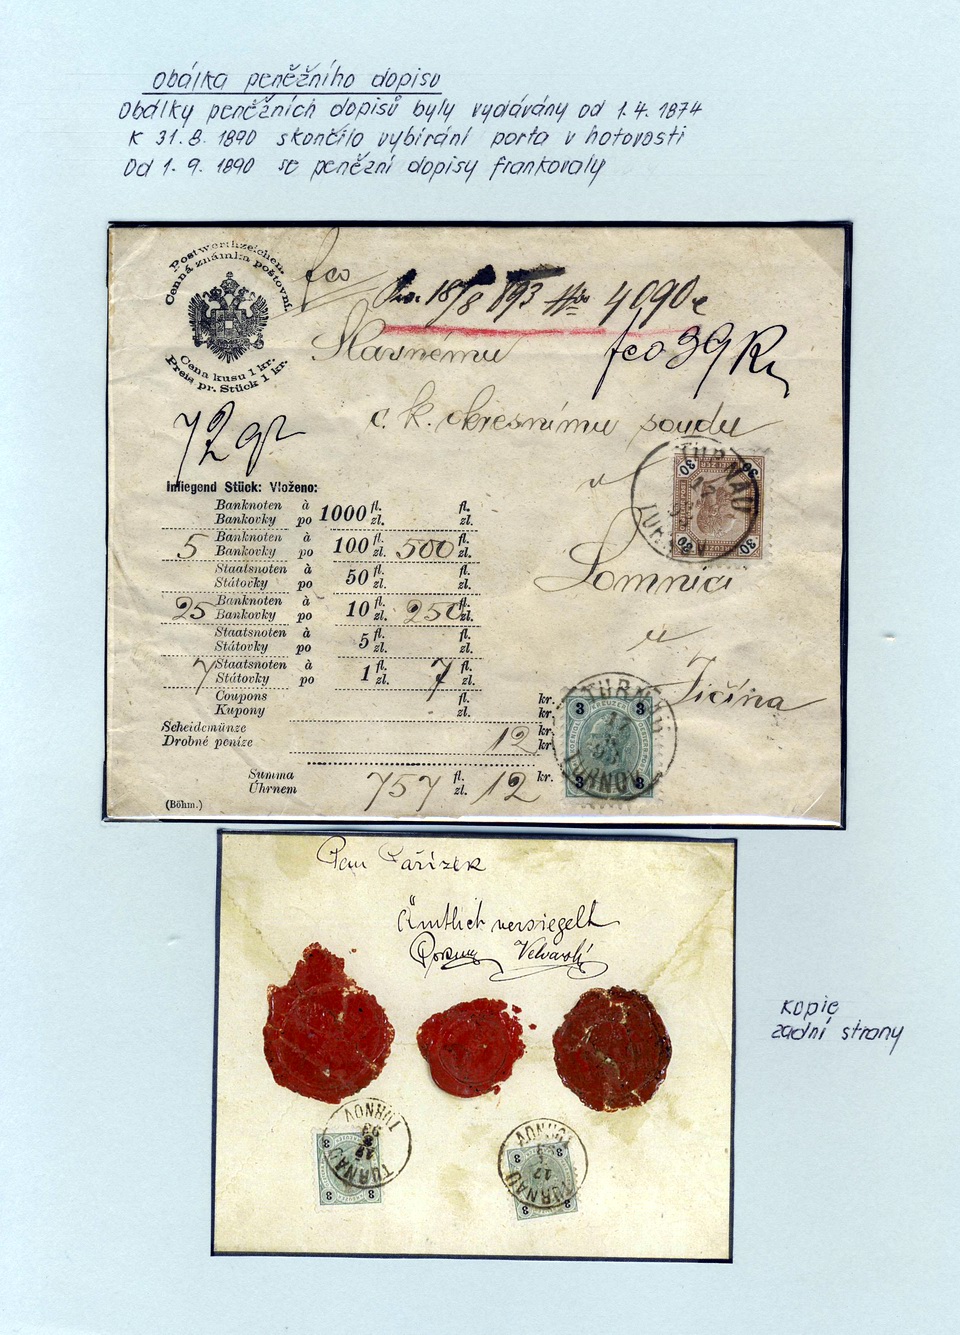 Obálka peněžního dopisu
Obálky peněžních dopisů byly vydávány od 1.4.1874
K 31.8.1890 skončilo vybírání porta v hotovosti
Od 1.9.1890 se peněžní dopisy frankovaly
Postwerthzeichen.
Cenná známka poštovní.
Cena kusu 1 kr.
Preis pr. Stück 1 kr.
fco
18/8 893 4090
Slavnému
fco 39 Kr
c. k. okresnímu soudu
v
Lomnici
u
Jičína
72 gr
Inliegend Stück: Vloženo:
Banknoten à 1000 fl. fl.
Bankovky po zl. zl.
5 Banknoten à 100 fl. 500 fl.
Bankovky po zl. zl.
Staatsnoten à 50 fl. fl.
Státovky po zl. zl.
25 Banknoten à 10 fl. 250 fl.
Bankovky po zl. zl.
Staatsnoten à 5 fl. fl.
Státovky po zl. zl.
7 Staatsnoten à 1 fl. 7 fl.
Státovky po zl. zl.
Coupons fl. kr.
Kupony zl. kr.
Scheidemünze kr.
Drobné peníze 12 kr.
Summa 757 fl. 12 kr.
Úhrnem zl.
(Böhm.)
30 30 30 30
TURNAU
17
TURNOV
3 KREUZER 3
3 3
TURNAU
17
TURNOV
Pan Pařízek
Ämtlich versiegelt
Velvarský
kopie
zadní strany
TURNOV
18
8
93
TURNAU
3 3
3 3
TURNOV
17
TURNAU
3 3
3 3